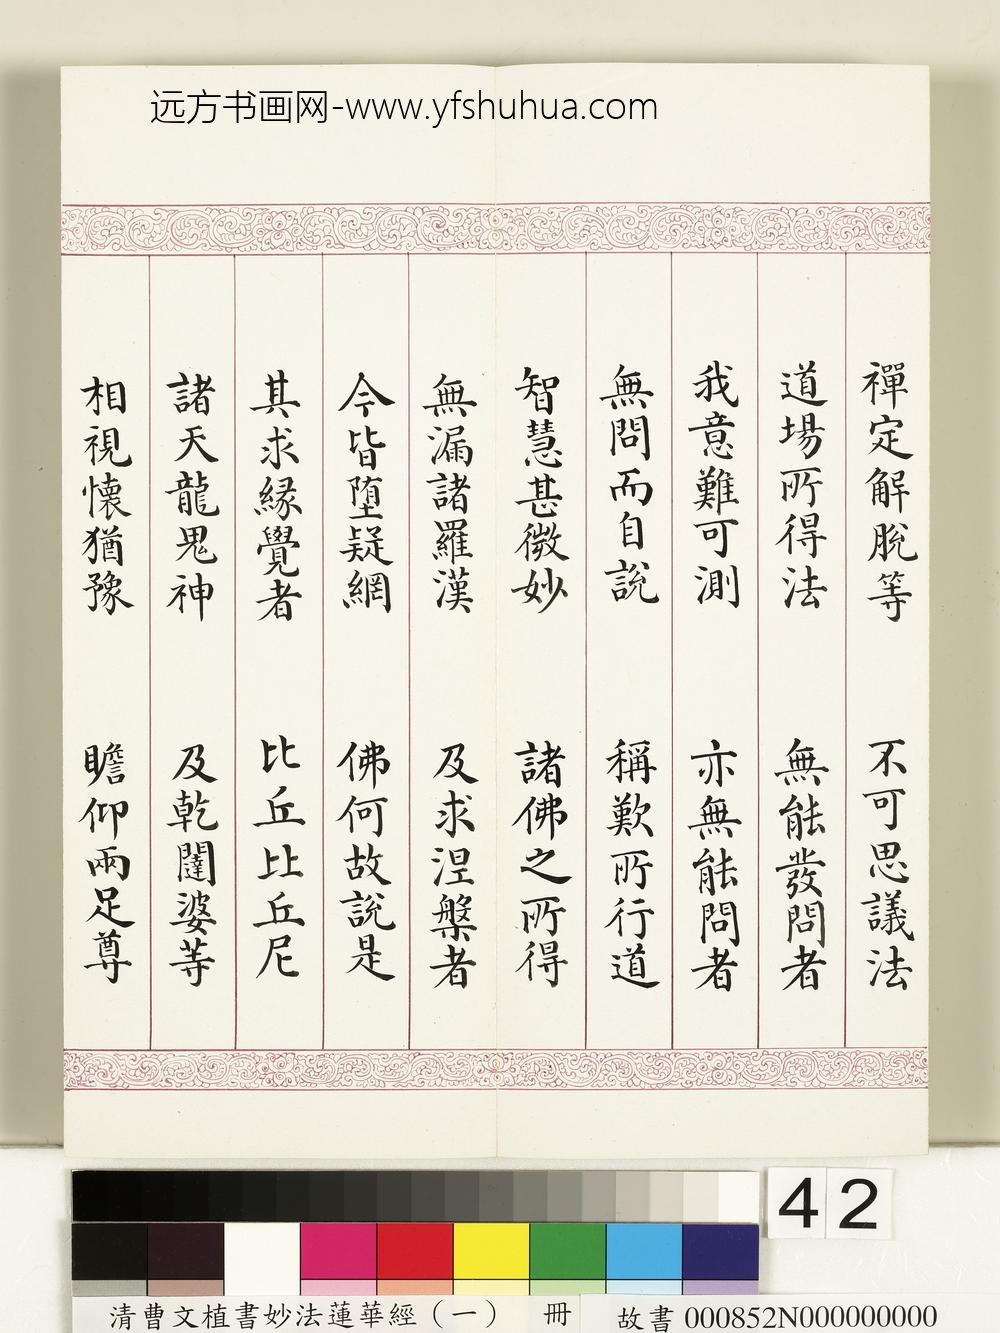 远方书画网-www.yfshuhua.com
禪定解脫等 不可思議法
道場所得法 無能發問者
我意難可測 亦無能問者
無問而自說 稱歎所行道
智慧甚微妙 諸佛之所得
無漏諸羅漢 及求涅槃者
今皆墮疑網 佛何故說是
其求緣覺者 比丘比丘尼
諸天龍鬼神 及乾闥婆等
相視懷猶豫 瞻仰兩足尊
42
清曹文植書妙法蓮華經（一） 冊 故書000852N000000000